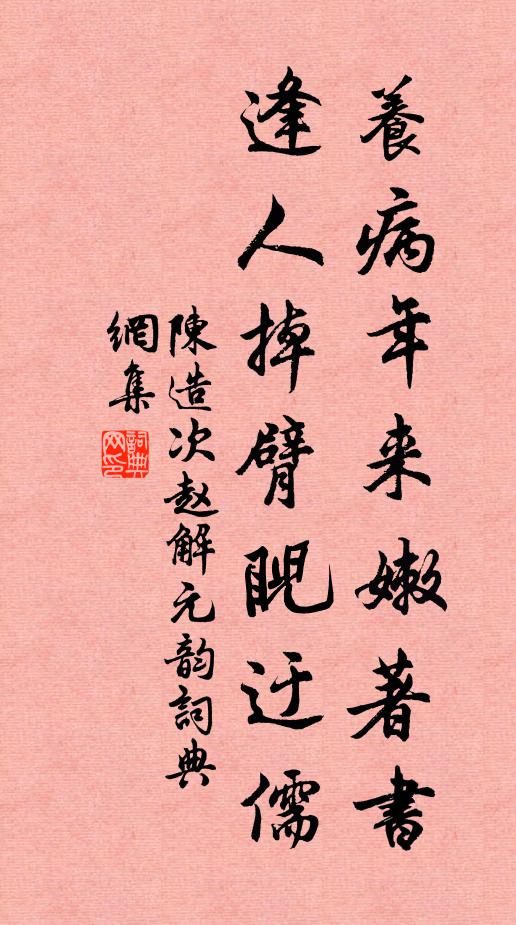 養病年来嫩著書
逢人掉臂睨迂儒
陳造次赵解元韵詞典
網集
詞典
网印